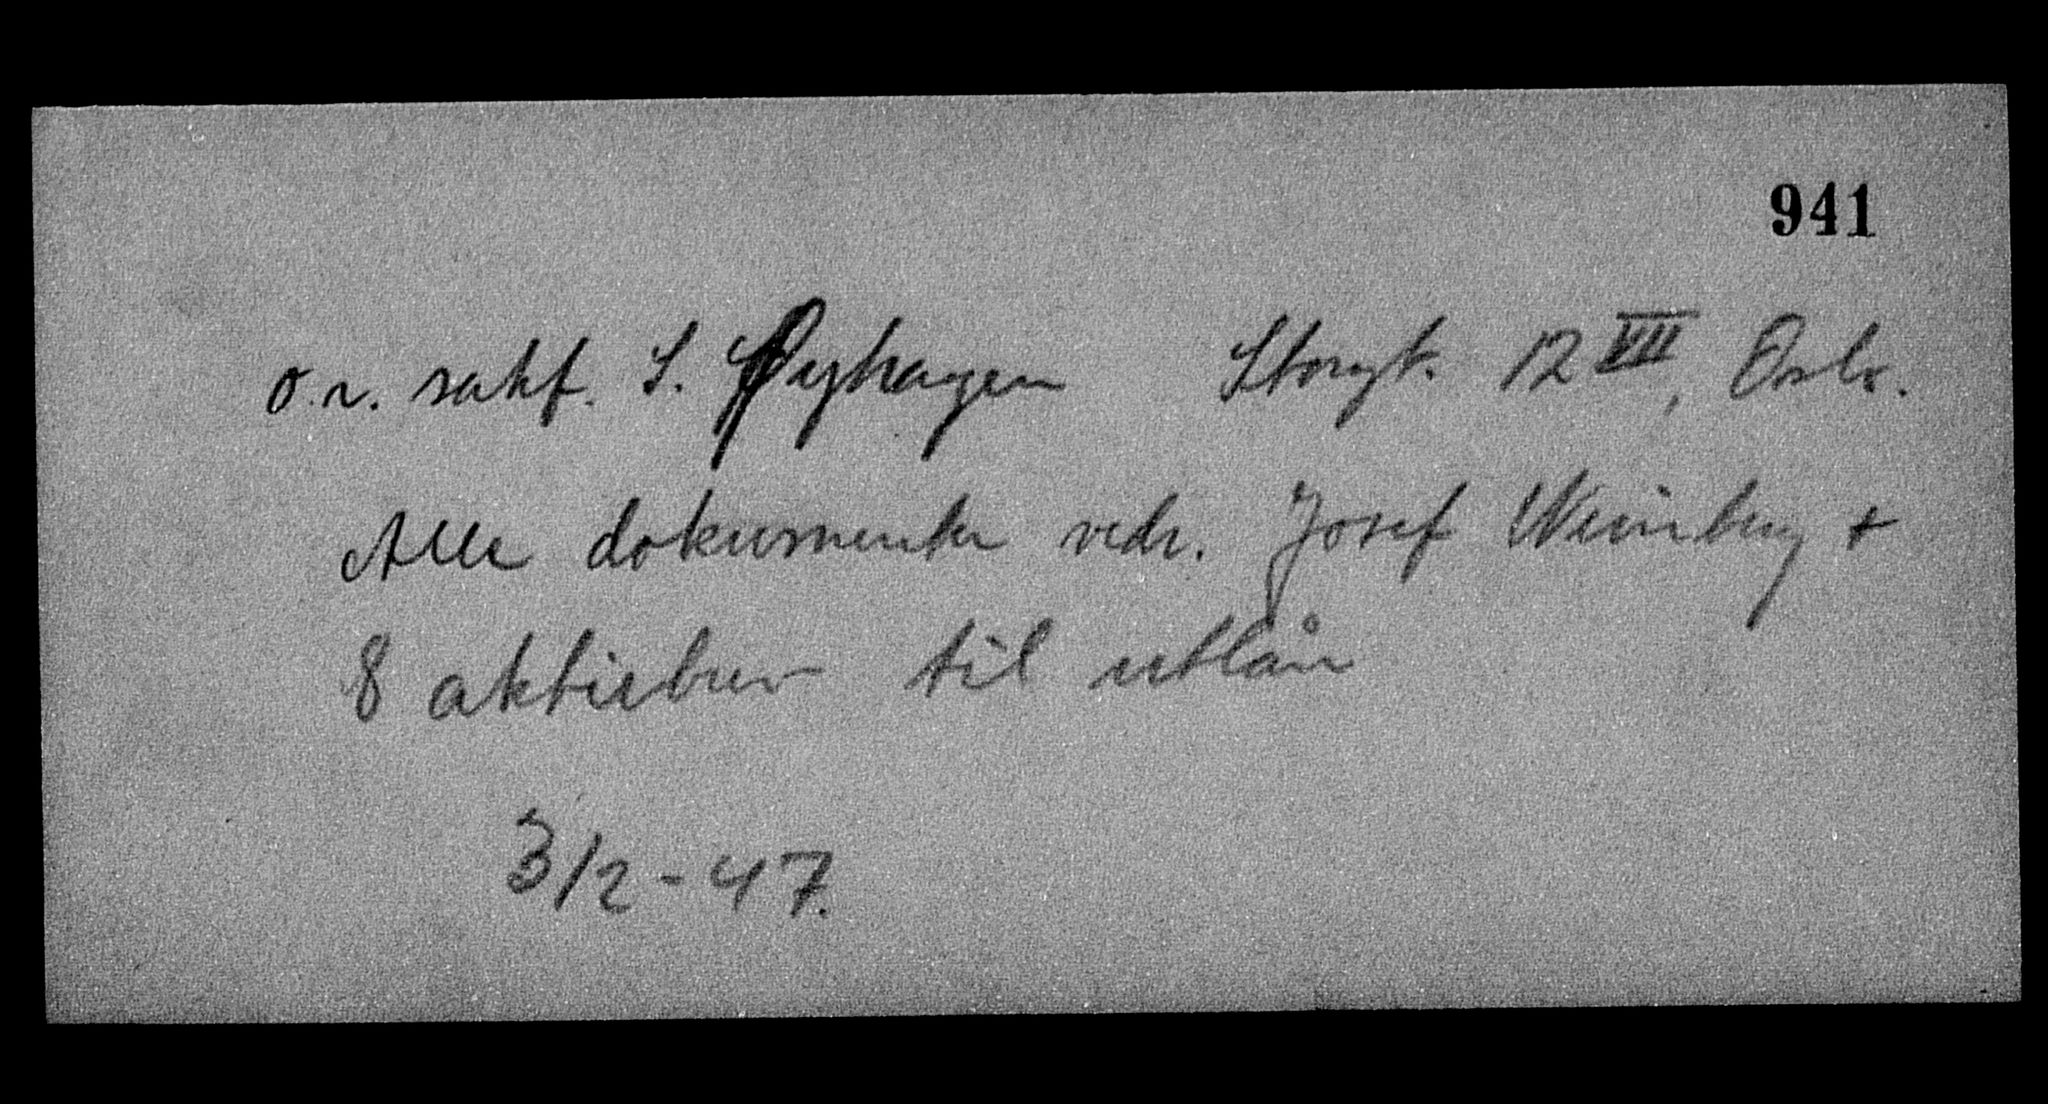 941
o.r. sakf. S. Øyhagen Storgt. 12 VII, Oslo.
Alle dokumenter vedr. Josef Weinberg +
8 aktiebrev til utlån
3/2-47.